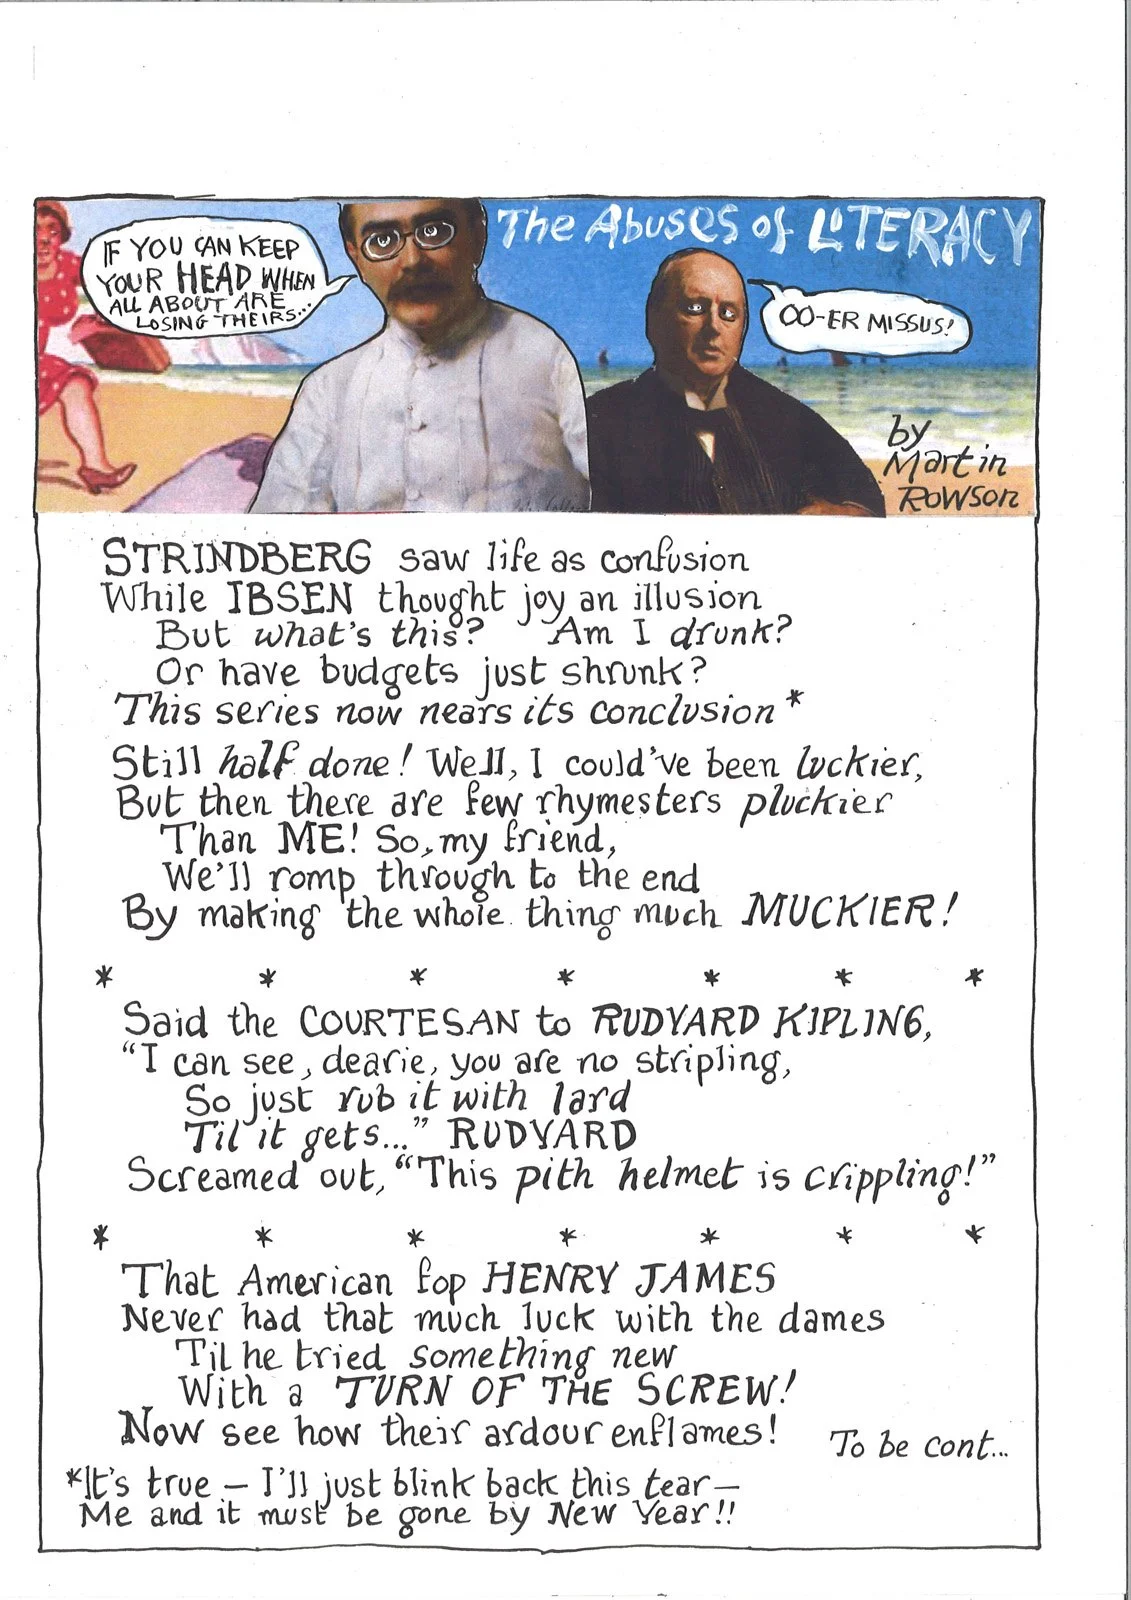 The Abuses of LITERACY
IF YOU CAN KEEP
YOUR HEAD WHEN
ALL ABOUT ARE
LOSING THEIRS...
OO-ER MISSUS!
by
Martin
Rowson
STRINDBERG saw life as confusion
While IBSEN thought joy an illusion
But what's this? Am I drunk?
Or have budgets just shrunk?
This series now nears its conclusion*
Still half done! Well, I could've been luckier,
But then there are few rhymesters pluckier
Than ME! So, my friend,
We'll romp through to the end
By making the whole thing much MUCKIER!
* * * * * * *
Said the COURTESAN to RUDYARD KIPLING,
"I can see, dearie, you are no stripling,
So just rub it with lard
Til it gets..." RUDYARD
Screamed out, "This pith helmet is crippling!"
* * * * * * *
That American fop HENRY JAMES
Never had that much luck with the dames
Til he tried something new
With a TURN OF THE SCREW!
Now see how their ardour enflames!
To be cont...
*It's true – I'll just blink back this tear –
Me and it must be gone by New Year!!